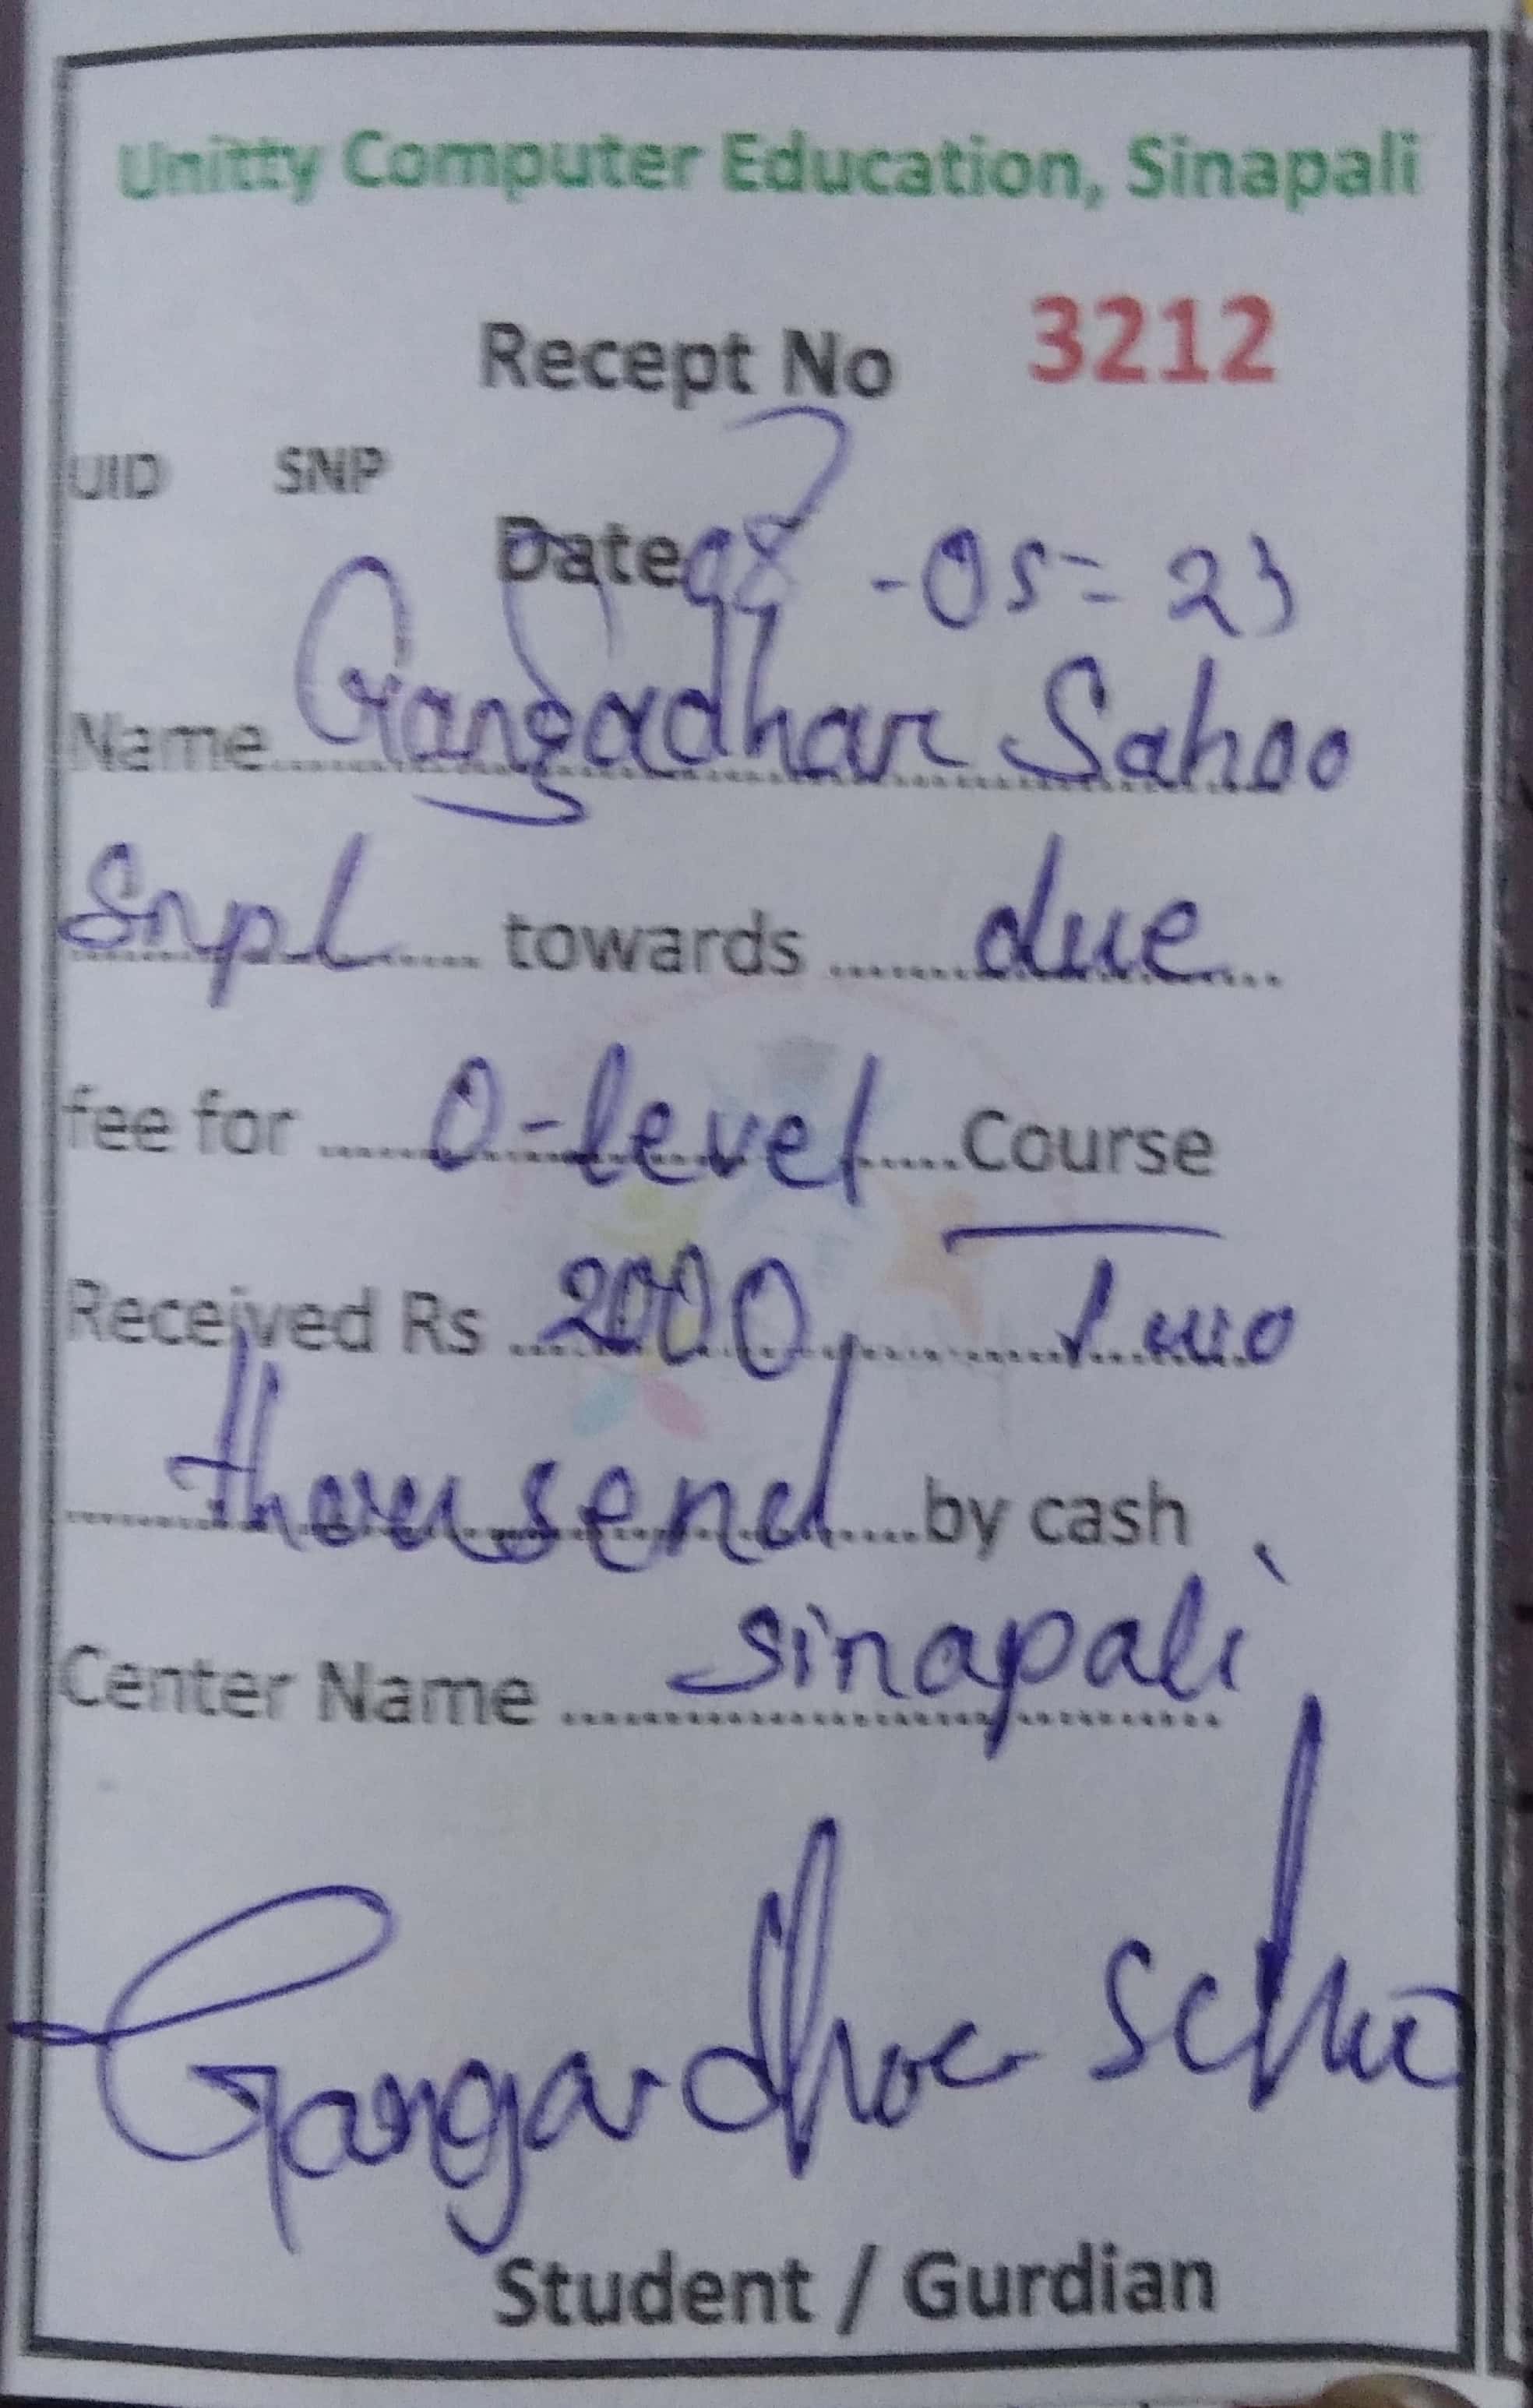 Unitty Computer Education, Sinapali
Recept No 3212
UID SNP
Date 08 -05- 23
Name Gangadhar Sahoo
Snpl towards due
fee for O-level Course
Received Rs 2000 Two
thousend by cash
Center Name sinapali
Gangardhar
Student / Gurdian